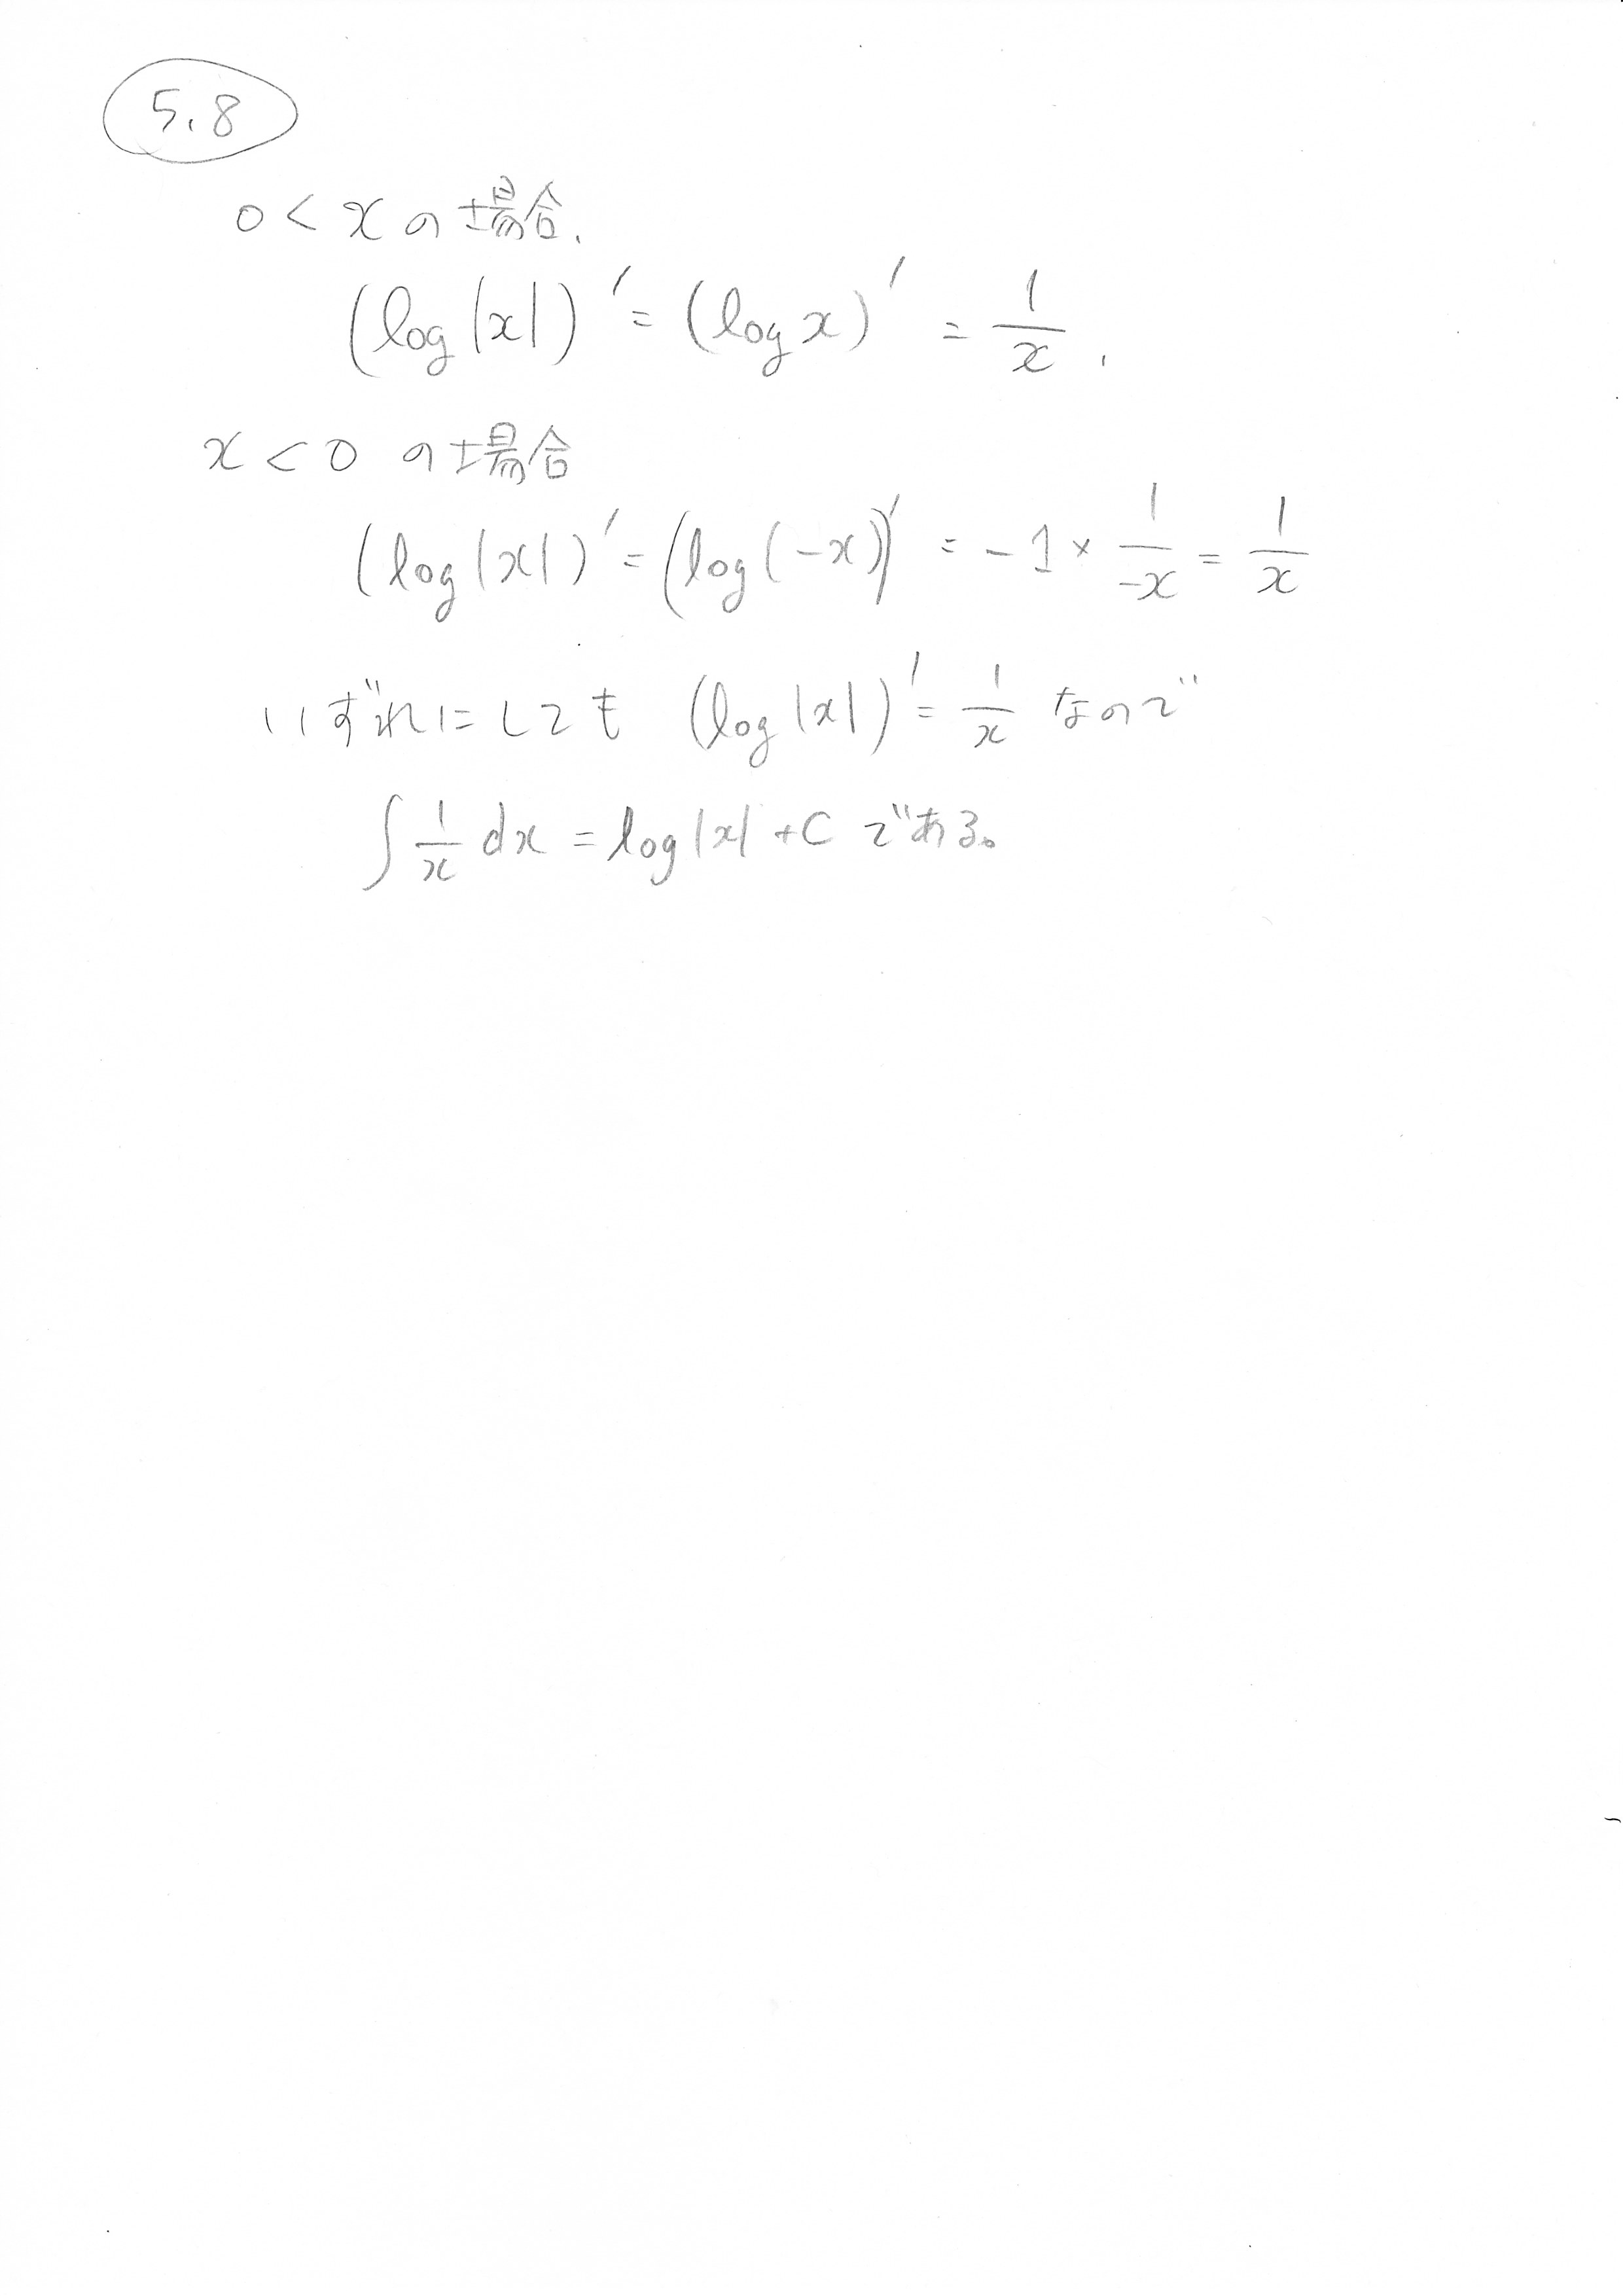 5.8
0 < x の場合.
(log |x|)' = (log x)' = 1/x .
x < 0 の場合
(log |x|)' = (log (-x))' = -1 × 1/-x = 1/x
いずれにしても (log |x|)' = 1/x なので
∫ 1/x dx = log |x| + C である。